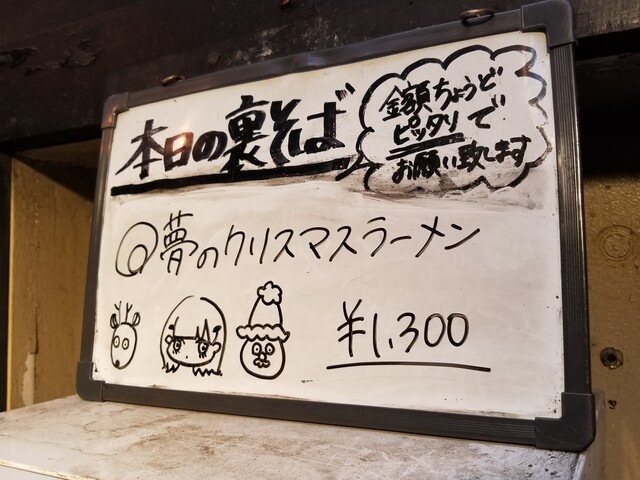 本日の裏そば
金額ちょうど
ピッタリで
お願い致します
◎夢のクリスマスラーメン
¥1,300